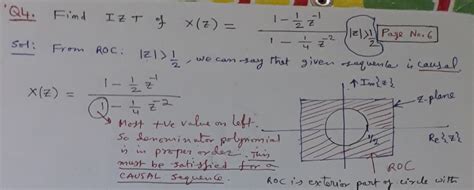 Q4. Find IZT of X(z) = (1 - 1/2 z^-1) / (1 - 1/4 z^-2) |z| > 1/2 Page No. 6
Sol: From ROC: |z| > 1/2, we can say that given sequence is causal
X(z) = (1 - 1/2 z^-1) / (1 - 1/4 z^-2)
Most +ve value on left.
So denominator polynomial
is in proper order. This
must be satisfied for a
CAUSAL sequence.
Im{z}
z-plane
1/2
Re{z}
ROC
ROC is exterior part of circle with